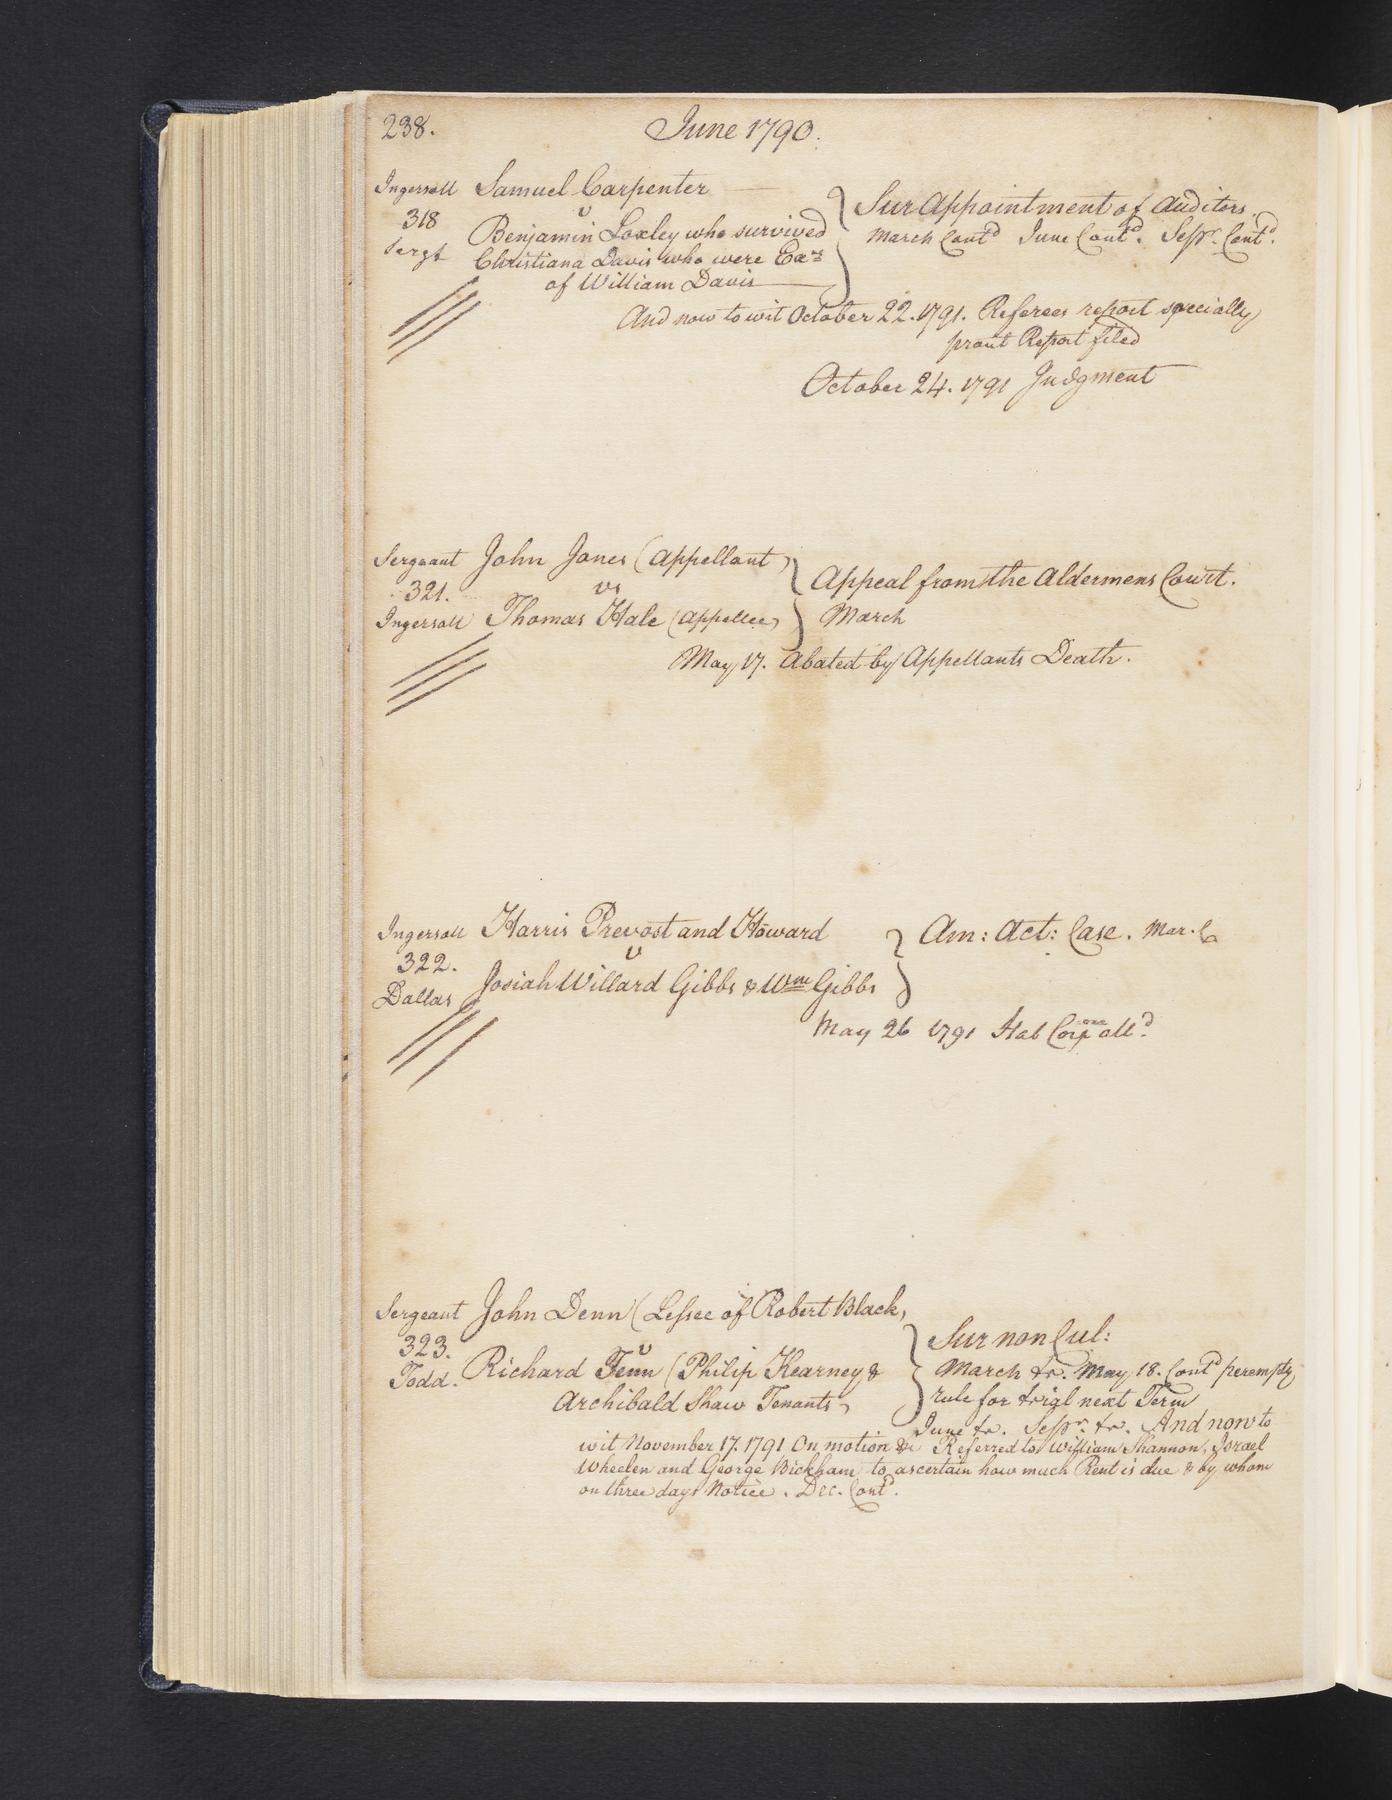 238.
June 1790.
Ingersoll Samuel Carpenter
318 v
Sergt Benjamin Loxley who survived
Christiana Davis who were Exrs
of William Davis
Sur Appointment of Auditors.
March Contd June Contd. Sepr. Contd.
And now to wit October 22. 1791. Referees report specially
prout Report filed
October 24. 1791 Judgment
Sergeant John Jones (Appellant)
321. vs
Ingersoll Thomas Hale (Appellee)
Appeal from the Aldermens Court.
March
May 17. Abated by Appellants Death.
Ingersoll Harris Prevost and Howard
322. v
Dallas Josiah Willard Gibbs & Wm Gibbs
Am: Act: Case. Mar. C
May 26 1791 Hab Corp alld.
Sergeant John Denn (Lessee of Robert Black,
323. v
Todd. Richard Fenn (Philip Kearney &
Archibald Shaw Tenants)
Sur non Cul:
March tr. May 18. Contd peremptry
rule for trial next Term
June tr. Sepr. tr. And now to
wit November 17. 1791 On motion &c Referred to William Shannon, Israel
Wheelen and George Bickham to ascertain how much Rent is due & by whom
on three days Notice. Dec. Contd.